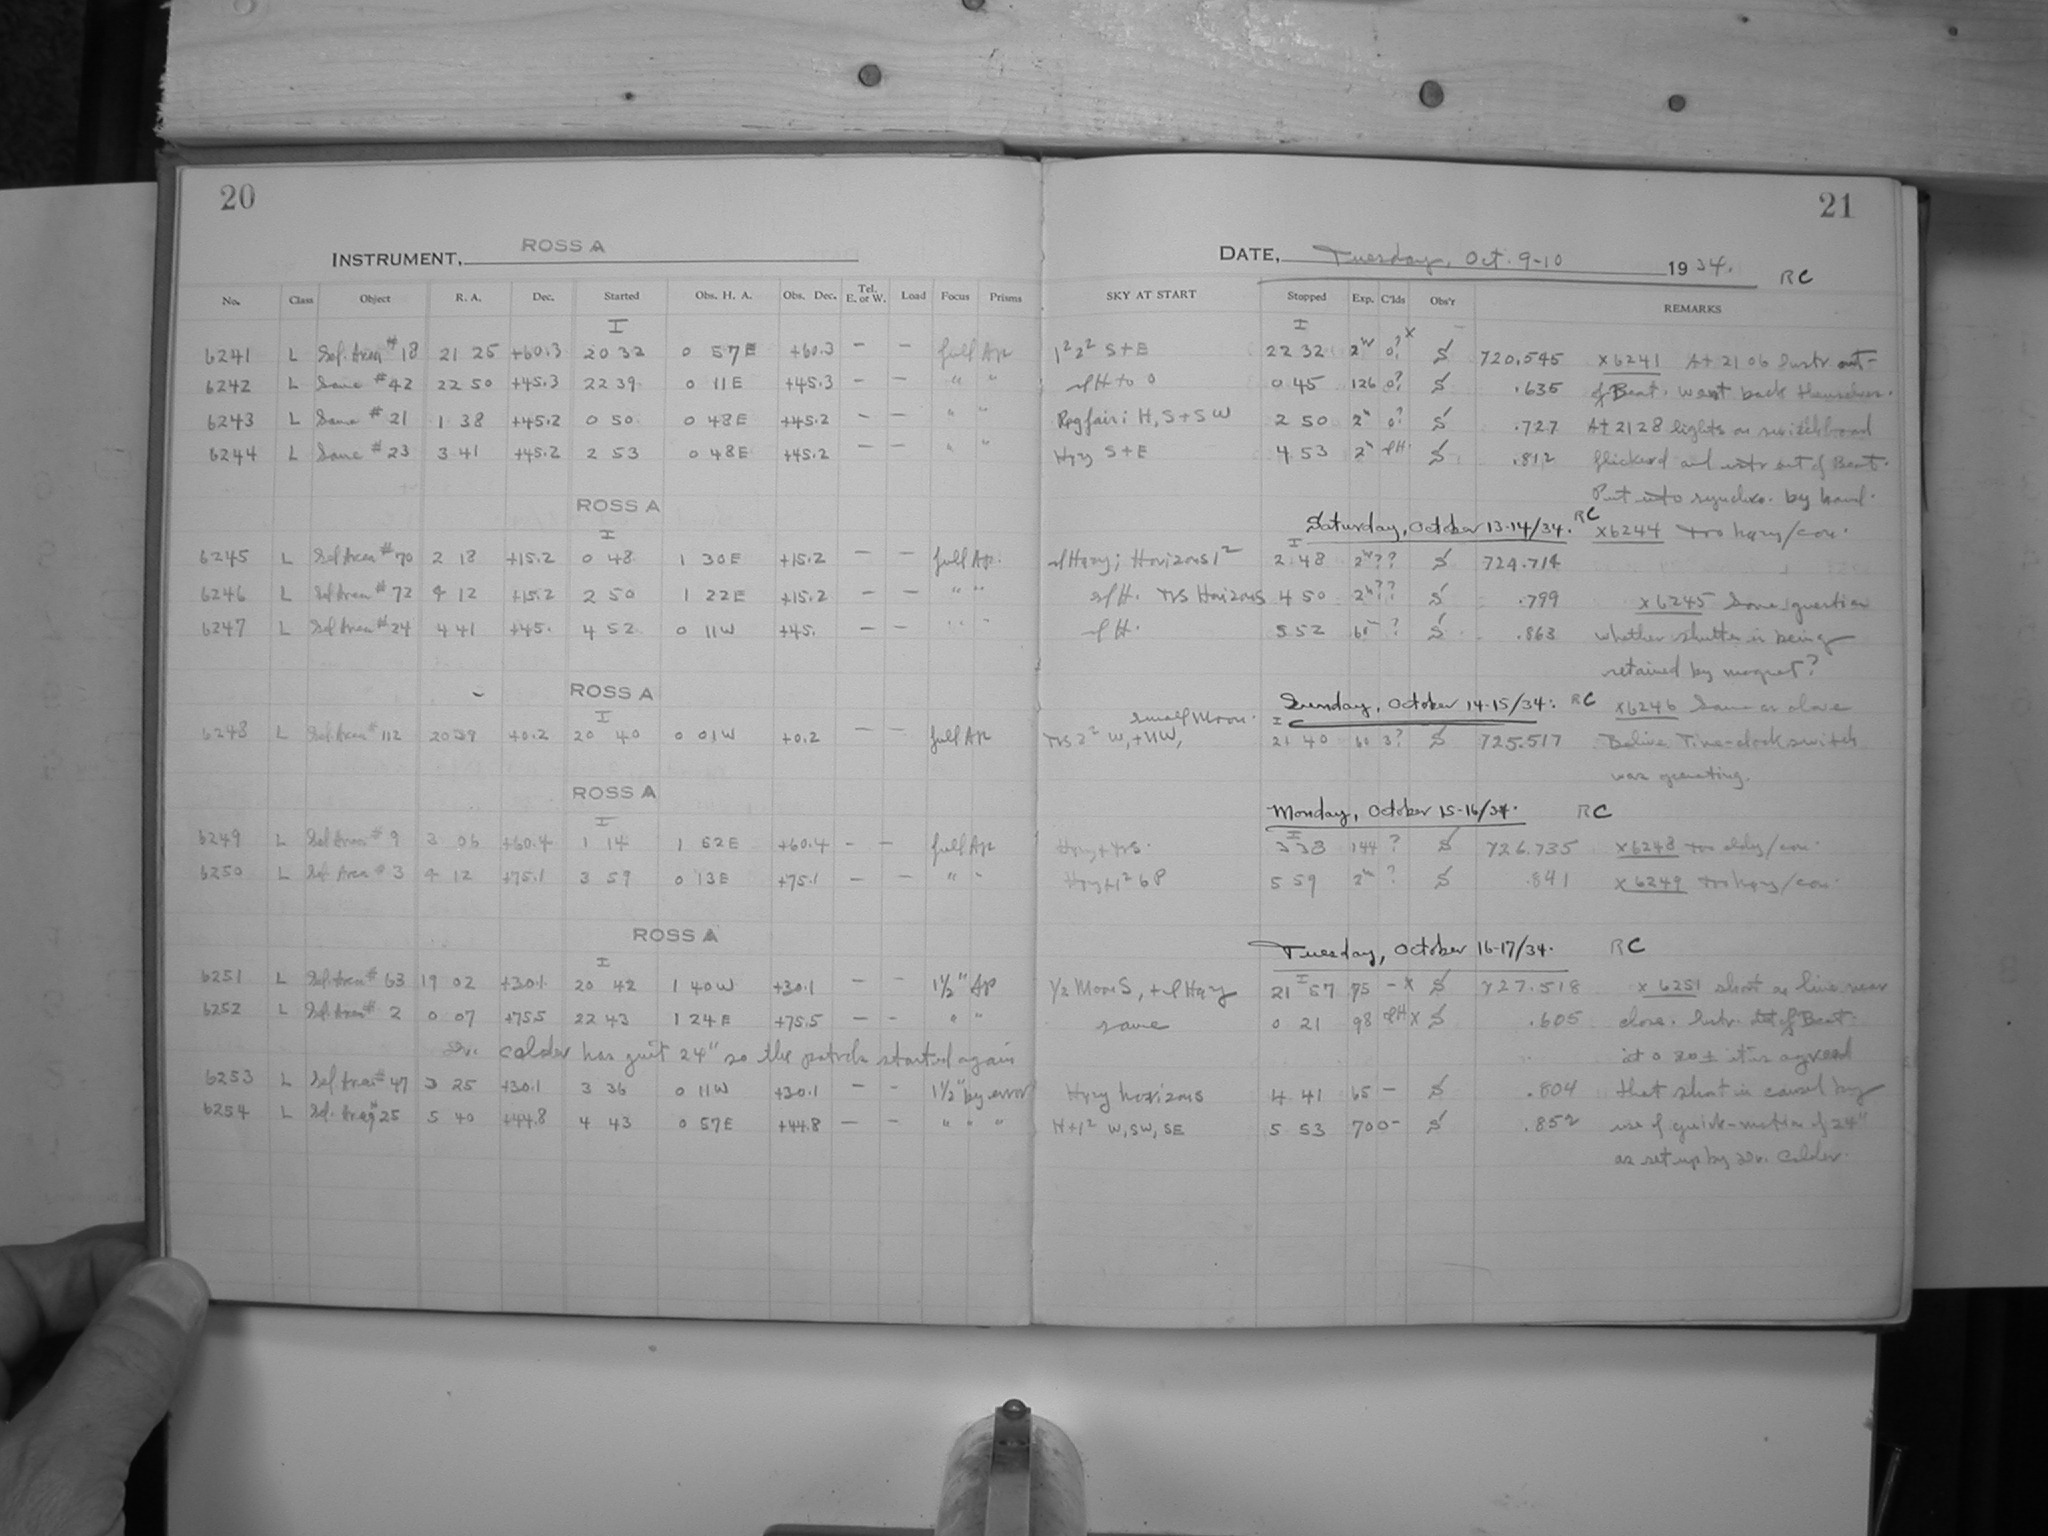 20
21
INSTRUMENT, ROSS A
DATE, Tuesday, Oct. 9-10 1934. RC
No. Class Object R. A. Dec. Started Obs. H. A. Obs. Dec. Tel. E. or W. Load Focus Prisms SKY AT START Stopped Exp. C'lds Obs'r REMARKS
I I
6241 L Sel. Area #18 21 25 +60.3 20 32 0 57E +60.3 — — full Ap 1² 2² S+E 22 32 2ʰ 0? x S 720.545 x6241 At 21 06 Instr out-
6242 L Same #42 22 50 +45.3 22 39 0 11E +45.3 — — " " slH to 0 0 45 126 0? S .635 of Beat. went back themselves.
6243 L Same #21 1 38 +45.2 0 50 0 48E +45.2 — — " " Reg fair; H, S+SW 2 50 2ʰ 0? S .727 At 2128 lights on switchboard
6244 L Same #23 3 41 +45.2 2 53 0 48E +45.2 — — " " Hazy S+E 4 53 2ʰ slH. S .812 flickered and instr out of Beat.
Put into synchro. by hand.
ROSS A
Saturday, October 13-14/34. RC x6244 too hazy/con.
I I
6245 L Sel Area #70 2 18 +15.2 0 48 1 30E +15.2 — — full Ap. sl Hazy; Horizons 1² 2 48 2ʰ ?? S 724.714
6246 L Sel Area #72 4 12 +15.2 2 50 1 22E +15.2 — — " " slH. Horizons 4 50 2ʰ ?? S .799 x6245 Some question
6247 L Sel Area #24 4 41 +45. 4 52 0 11W +45. — — " " slH. 5 52 60 ? S .863 whether shutter is being
retained by magnet?
ROSS A
Sunday, October 14-15/34. RC x6246 Same as above
I small Moon. I
6248 L Sel. Area #112 20 39 +0.2 20 40 0 01W +0.2 — — full Ap 2² W, +NW, 21 40 60 3? S 725.517 Believe Time-clock switch
was operating.
ROSS A
Monday, October 15-16/34. RC
I I
6249 L Sel Area #9 3 06 +60.4 1 14 1 52E +60.4 — — full Ap 3 38 144 ? S 726.735 x6248 too cldy/con.
6250 L Sel. Area #3 4 12 +75.1 3 59 0 13E +75.1 — — " " 5 59 2ʰ ? S .841 x6249 too hazy/con.
ROSS A
Tuesday, October 16-17/34. RC
I I
6251 L Sel. Area #63 19 02 +30.1 20 42 1 40W +30.1 — — 1½" Ap ½ Moon S, + sl Hazy 21 57 75 — x S 727.518 x6251 short as line near
6252 L Sel Area #2 0 07 +75.5 22 43 1 24E +75.5 — — " " same 0 21 98 slH x S .605 close. Instr. out of Beat
Dr. Calder has quit 24" so the patrols started again at 0 20± it is agreed
6253 L Sel Area #47 3 25 +30.1 3 36 0 11W +30.1 — — 1½" by error Hazy horizons 4 41 65 — S .804 that short is caused by
6254 L Sel. Area #25 5 40 +44.8 4 43 0 57E +44.8 — — " " " H+1² W, SW, SE 5 53 70 0- S .852 use of quick-motion of 24"
as set up by Dr. Calder.